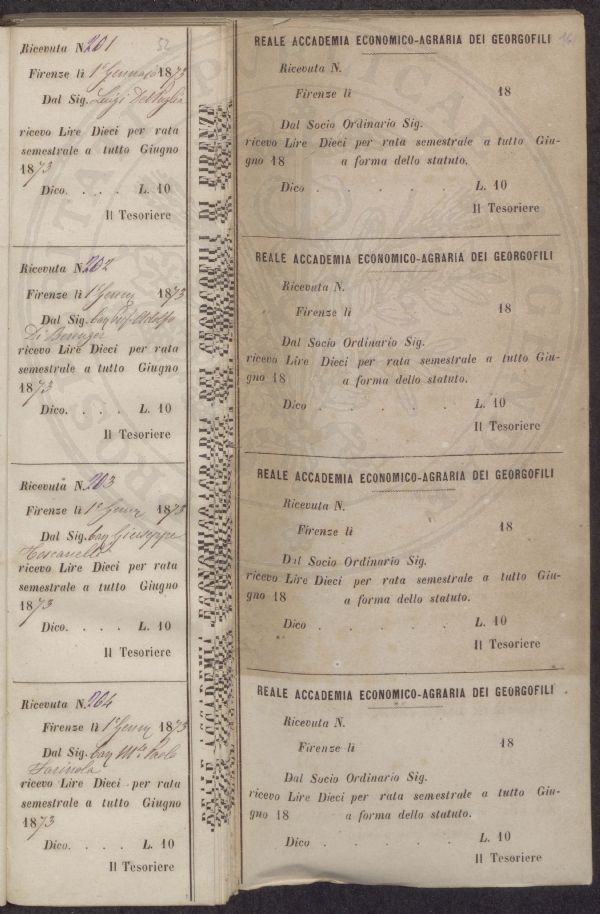 52
Ricevuta N. 201
Firenze li 1º Gennaio 1873
Dal Sig. Luigi
ricevo Lire Dieci per rata
semestrale a tutto Giugno
1873
Dico. . . . L. 10
Il Tesoriere
Ricevuta N. 202
Firenze li 1º 1873
Dal Sig. Adolfo
Di Berenger
ricevo Lire Dieci per rata
semestrale a tutto Giugno
1873
Dico. . . . L. 10
Il Tesoriere
Ricevuta N. 203
Firenze li 1º 1873
Dal Sig. Giuseppe
Toscanelli
ricevo Lire Dieci per rata
semestrale a tutto Giugno
1873
Dico. . . . L. 10
Il Tesoriere
Ricevuta N. 204
Firenze li 1º 1873
Dal Sig. Paolo
Farinola
ricevo Lire Dieci per rata
semestrale a tutto Giugno
1873
Dico. . . . L. 10
Il Tesoriere
REALE ACCADEMIA ECONOMICO-AGRARIA DEI GEORGOFILI DI FIRENZE
REALE ACCADEMIA ECONOMICO-AGRARIA DEI GEORGOFILI
Ricevuta N.
Firenze li 18
Dal Socio Ordinario Sig.
ricevo Lire Dieci per rata semestrale a tutto Giu-
gno 18 a forma dello statuto.
Dico . . . . L. 10
Il Tesoriere
REALE ACCADEMIA ECONOMICO-AGRARIA DEI GEORGOFILI
Ricevuta N.
Firenze li 18
Dal Socio Ordinario Sig.
ricevo Lire Dieci per rata semestrale a tutto Giu-
gno 18 a forma dello statuto.
Dico . . . . L. 10
Il Tesoriere
REALE ACCADEMIA ECONOMICO-AGRARIA DEI GEORGOFILI
Ricevuta N.
Firenze li 18
Dal Socio Ordinario Sig.
ricevo Lire Dieci per rata semestrale a tutto Giu-
gno 18 a forma dello statuto.
Dico . . . . L. 10
Il Tesoriere
REALE ACCADEMIA ECONOMICO-AGRARIA DEI GEORGOFILI
Ricevuta N.
Firenze li 18
Dal Socio Ordinario Sig.
ricevo Lire Dieci per rata semestrale a tutto Giu-
gno 18 a forma dello statuto.
Dico . . . . L. 10
Il Tesoriere